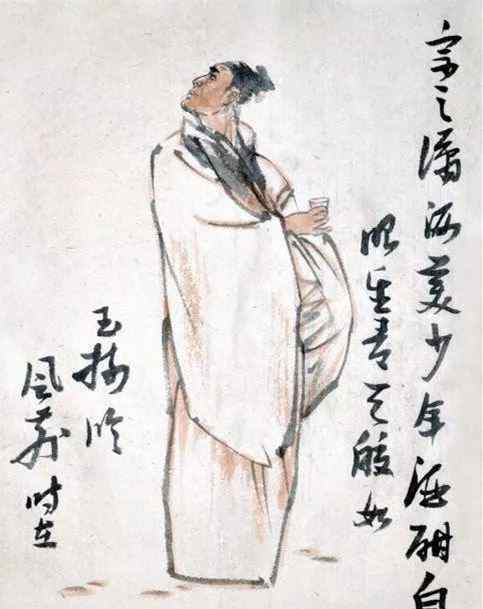 宗之潇洒美少年酒酣白
眼望青天皎如
玉树临
风前时在